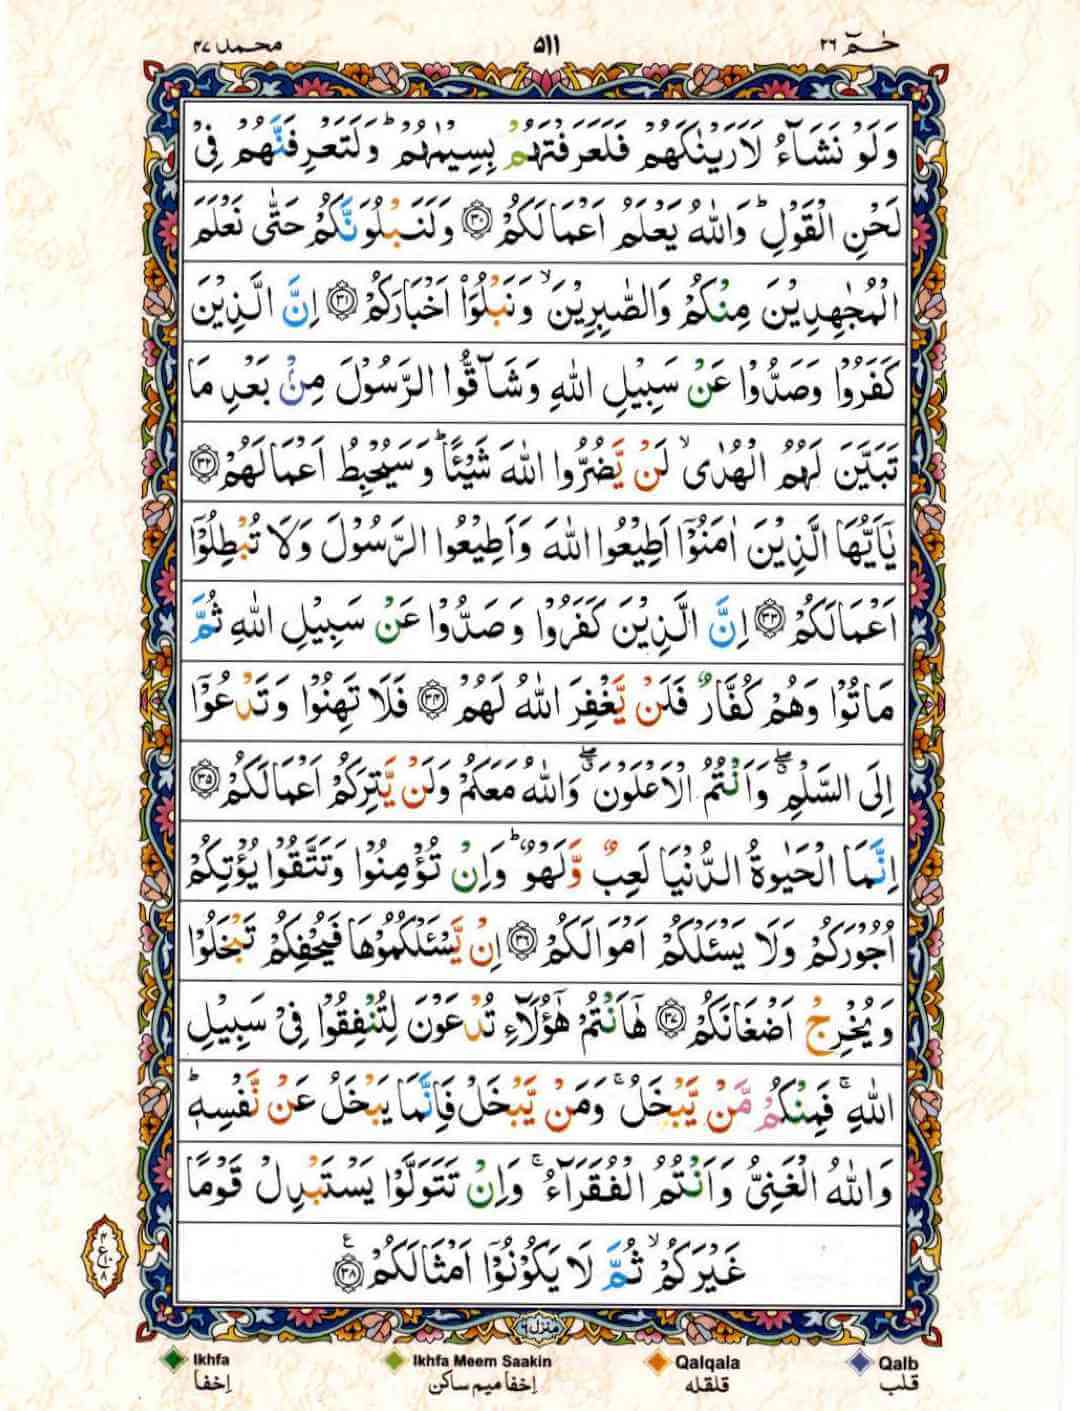 حٰمٓ ٢٦
٥١١
محمد ٤٧
وَلَوْ نَشَآءُ لَاَرَيْنٰكَهُمْ فَلَعَرَفْتَهُمْ بِسِيْمٰهُمْ ؕ وَلَتَعْرِفَنَّهُمْ فِيْ
لَحْنِ الْقَوْلِ ؕ وَاللّٰهُ يَعْلَمُ اَعْمَالَكُمْ ﴿٣٠﴾ وَلَنَبْلُوَنَّكُمْ حَتّٰى نَعْلَمَ
الْمُجٰهِدِيْنَ مِنْكُمْ وَالصّٰبِرِيْنَ ۙ وَنَبْلُوَا۟ اَخْبَارَكُمْ ﴿٣١﴾ اِنَّ الَّذِيْنَ
كَفَرُوْا وَصَدُّوْا عَنْ سَبِيْلِ اللّٰهِ وَشَآقُّوا الرَّسُوْلَ مِنْۢ بَعْدِ مَا
تَبَيَّنَ لَهُمُ الْهُدٰى ۙ لَنْ يَّضُرُّوا اللّٰهَ شَيْـًٔا ؕ وَسَيُحْبِطُ اَعْمَالَهُمْ ﴿٣٢﴾
يٰٓاَيُّهَا الَّذِيْنَ اٰمَنُوْٓا اَطِيْعُوا اللّٰهَ وَاَطِيْعُوا الرَّسُوْلَ وَلَا تُبْطِلُوْٓا
اَعْمَالَكُمْ ﴿٣٣﴾ اِنَّ الَّذِيْنَ كَفَرُوْا وَصَدُّوْا عَنْ سَبِيْلِ اللّٰهِ ثُمَّ
مَاتُوْا وَهُمْ كُفَّارٌ فَلَنْ يَّغْفِرَ اللّٰهُ لَهُمْ ﴿٣٤﴾ فَلَا تَهِنُوْا وَتَدْعُوْٓا
اِلَى السَّلْمِ ۖ وَاَنْتُمُ الْاَعْلَوْنَ ۖ وَاللّٰهُ مَعَكُمْ وَلَنْ يَّتِرَكُمْ اَعْمَالَكُمْ ﴿٣٥﴾
اِنَّمَا الْحَيٰوةُ الدُّنْيَا لَعِبٌ وَّلَهْوٌ ؕ وَاِنْ تُؤْمِنُوْا وَتَتَّقُوْا يُؤْتِكُمْ
اُجُوْرَكُمْ وَلَا يَسْـَٔلْكُمْ اَمْوَالَكُمْ ﴿٣٦﴾ اِنْ يَّسْـَٔلْكُمُوْهَا فَيُحْفِكُمْ تَبْخَلُوْا
وَيُخْرِجْ اَضْغَانَكُمْ ﴿٣٧﴾ هٰٓاَنْتُمْ هٰٓؤُلَآءِ تُدْعَوْنَ لِتُنْفِقُوْا فِيْ سَبِيْلِ
اللّٰهِ ۚ فَمِنْكُمْ مَّنْ يَّبْخَلُ ۚ وَمَنْ يَّبْخَلْ فَاِنَّمَا يَبْخَلُ عَنْ نَّفْسِهٖ ؕ
وَاللّٰهُ الْغَنِيُّ وَاَنْتُمُ الْفُقَرَآءُ ۚ وَاِنْ تَتَوَلَّوْا يَسْتَبْدِلْ قَوْمًا
غَيْرَكُمْ ۙ ثُمَّ لَا يَكُوْنُوْٓا اَمْثَالَكُمْ ﴿٣٨﴾ ع
٤ ع ١٠ ٨
Ikhfa Ikhfa Meem Saakin Qalqala Qalb
اِخفا اِخفا میم ساکن قلقله قلب